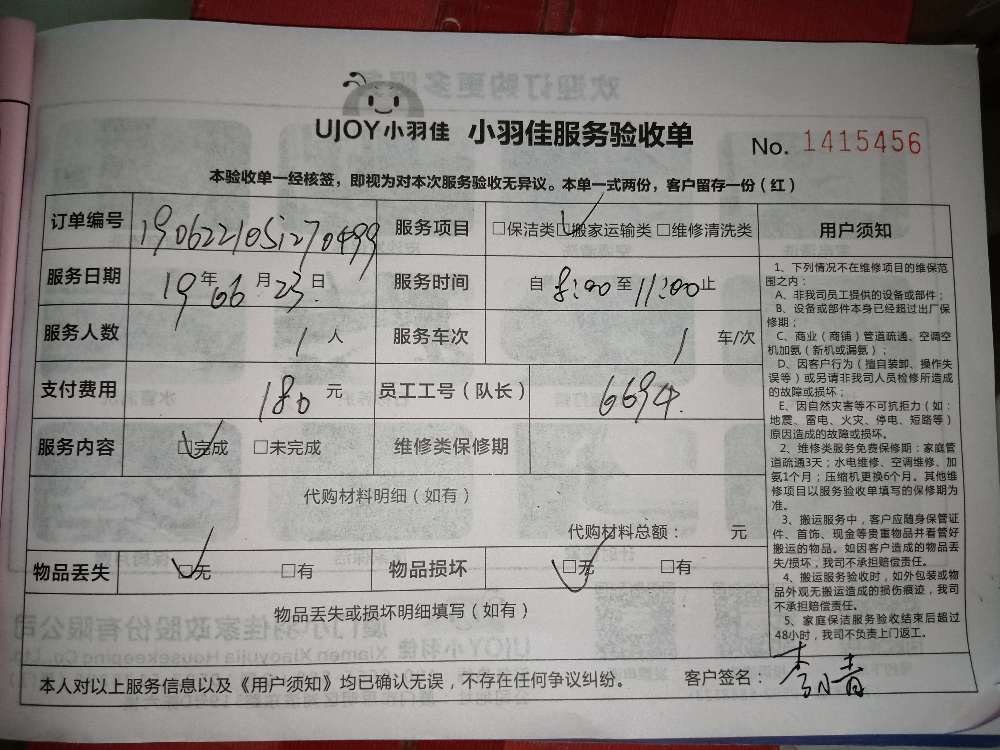 UJOY小羽佳 小羽佳服务验收单
No. 1415456
本验收单一经核签，即视为对本次服务验收无异议。本单一式两份，客户留存一份（红）
订单编号 服务项目 □保洁类 □搬家运输类 □维修清洗类
服务日期 19年06月23日 服务时间 自 8:00 至 11:00 止
服务人数 1 人 服务车次 1 车/次
支付费用 180 元 员工工号（队长） 6694
服务内容 □完成 □未完成 维修类保修期
代购材料明细（如有）
代购材料总额： 元
物品丢失 □无 □有 物品损坏 □无 □有
物品丢失或损坏明细填写（如有）
本人对以上服务信息以及《用户须知》均已确认无误，不存在任何争议纠纷。 客户签名：
用户须知
1、下列情况不在维修项目的维保范
围之内：
A、非我司员工提供的设备或部件；
B、设备或部件本身已经超过出厂保
修期；
C、商业（商铺）管道疏通、空调空
机加氨（新机或漏氨）；
D、因客户行为（擅自装卸、操作失
误等）或另请非我司人员检修所造成
的故障或损坏；
E、因自然灾害等不可抗拒力（如：
地震、雷电、火灾、停电、短路等）
原因造成的故障或损坏。
2、维修类服务免费保修期：家庭管
道疏通3天；水电维修、空调维修、加
氨1个月；压缩机更换6个月。其他维
修项目以服务验收单填写的保修期为
准。
3、搬运服务中，客户应随身保管证
件、首饰、现金等贵重物品并看管好
搬运的物品。如因客户造成的物品丢
失/损坏，我司不承担赔偿责任。
4、搬运服务验收时，如外包装或物
品外观无搬运造成的损伤痕迹，我司
不承担赔偿责任。
5、家庭保洁服务验收结束后超过
48小时，我司不负责上门返工。